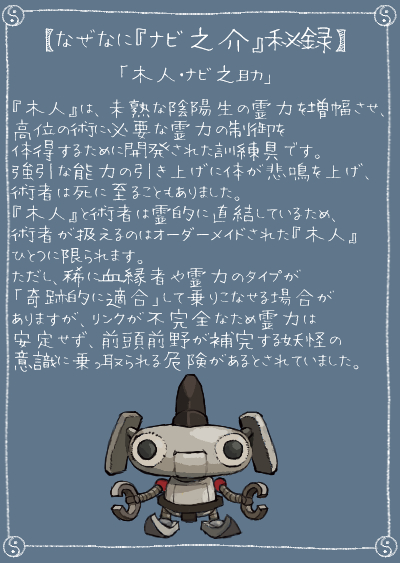 〖なぜなに『ナビ之介』秘録〗
「木人・ナビ之助」
『木人』は、未熟な陰陽生の霊力を増幅させ、
高位の術に必要な霊力の制御を
体得するために開発された訓練具です。
強引な能力の引き上げに体が悲鳴を上げ、
術者は死に至ることもありました。
『木人』と術者は霊的に直結しているため、
術者が扱えるのはオーダーメイドされた『木人』
ひとつに限られます。
ただし、稀に血縁者や霊力のタイプが
「奇跡的に適合」して乗りこなせる場合が
ありますが、リンクが不完全なため霊力は
安定せず、前頭前野が補完する妖怪の
意識に乗っ取られる危険があるとされていました。